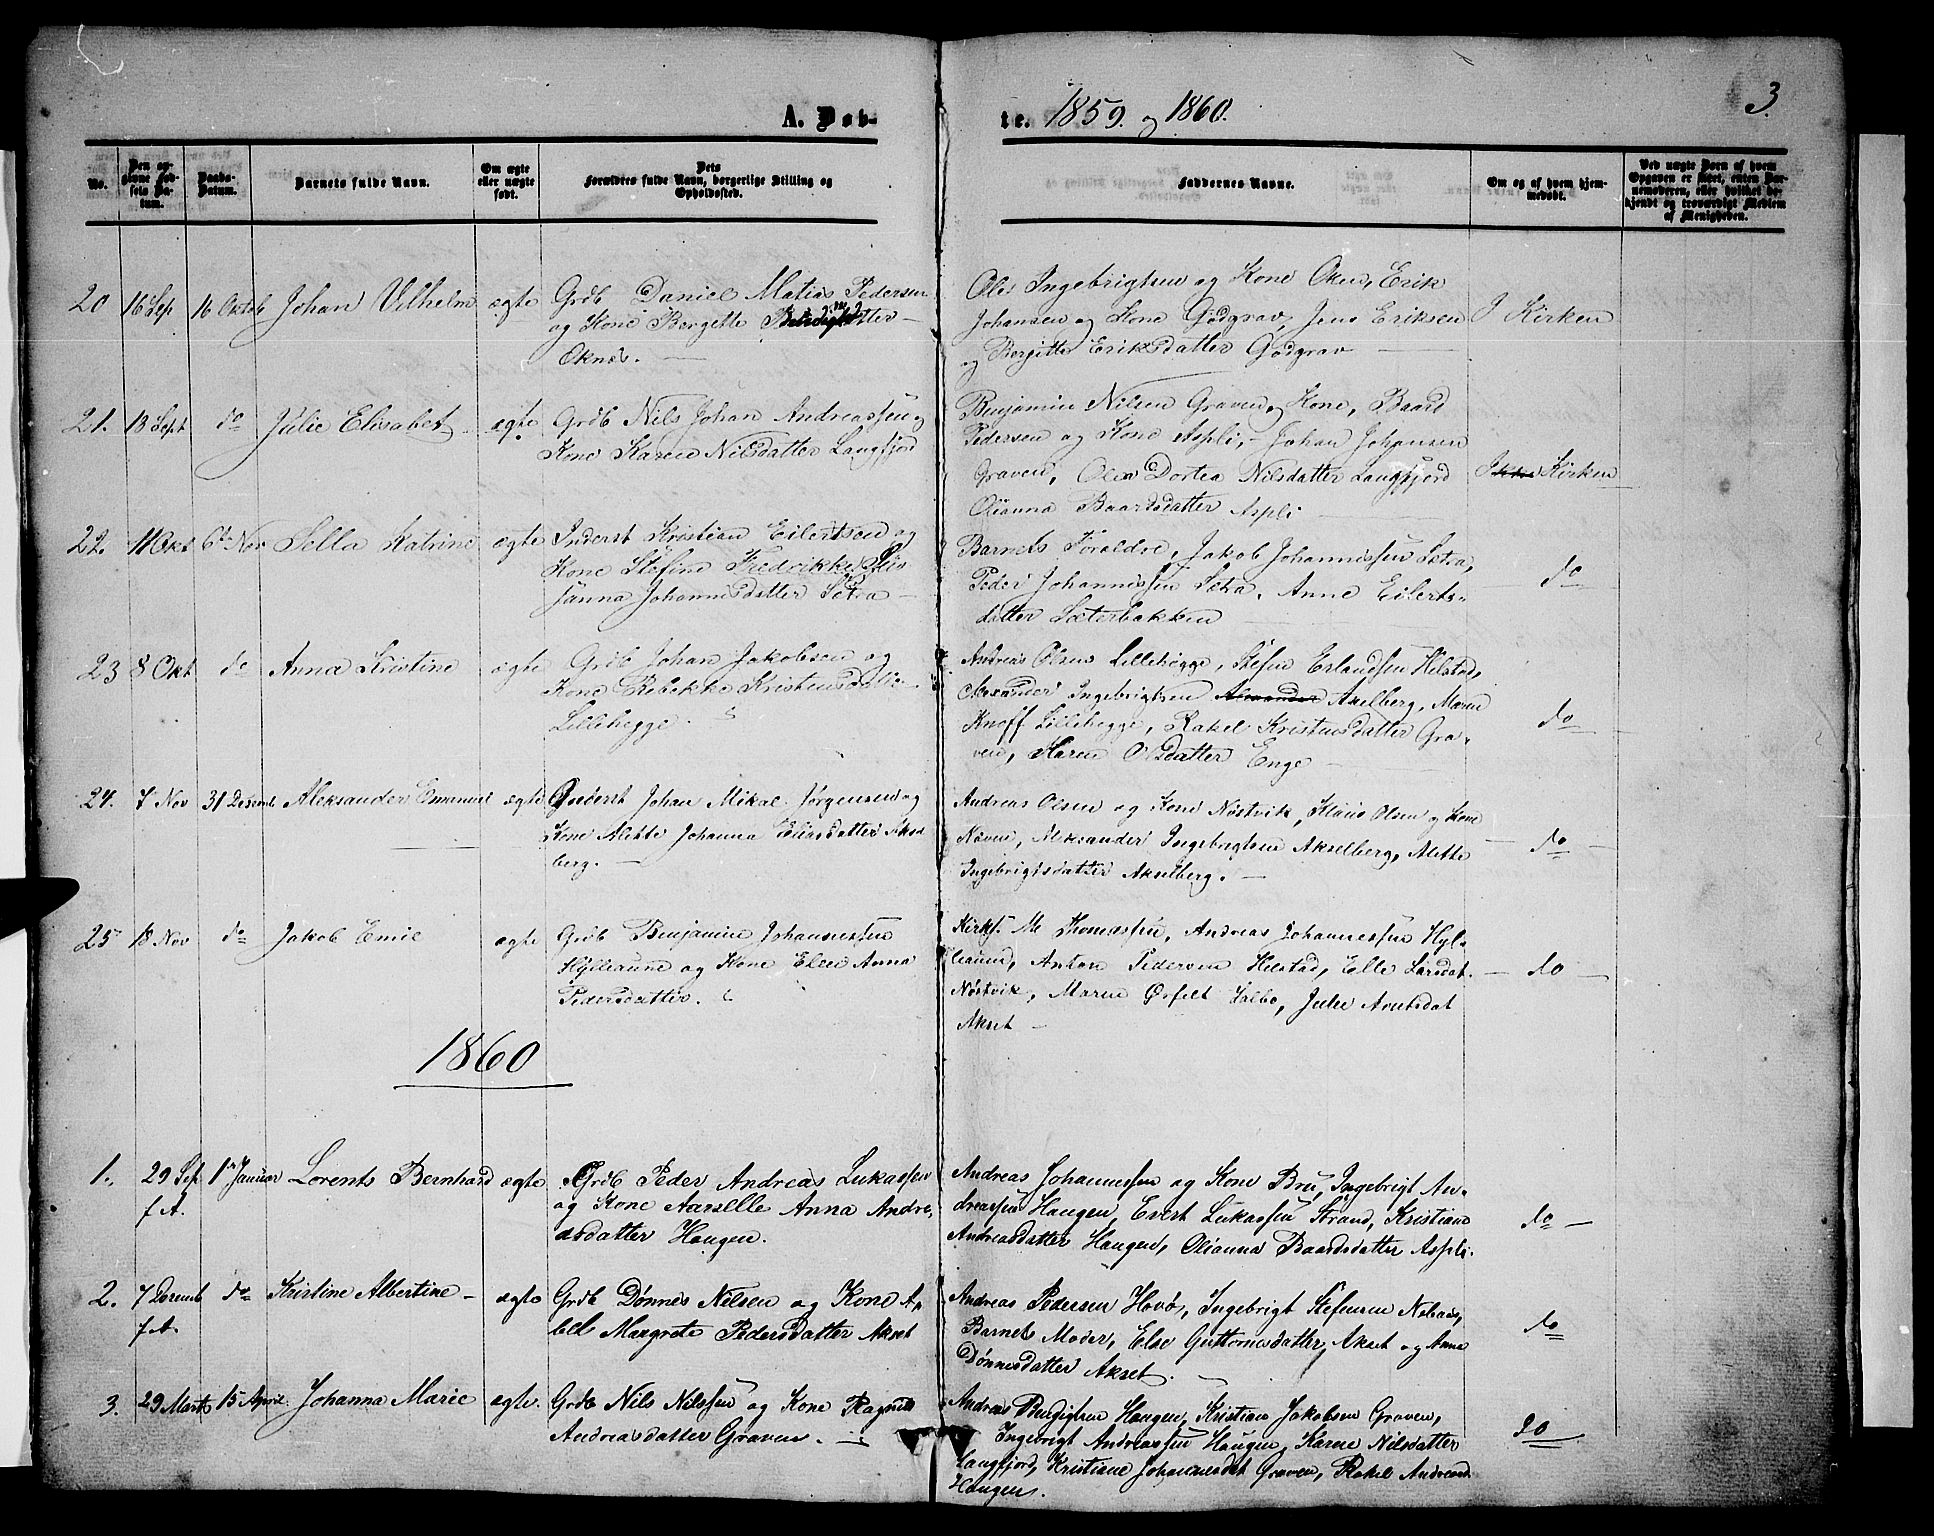 3.
A. Døbte. 1859. og 1860.
No.
Den opgivne Fødsels Datum.
Daabs-Datum.
Barnets fulde Navn.
Om ægte eller uægte født.
Dets Forældres fulde Navn, borgerlige Stilling og Opholdssted.
Faddernes Navne.
Om og af hvem hjemmedøbt.
Ved uægte Børn af hvem Opgaven er skeet, enten Barnemoderen, eller hvilket bekjendt og troværdigt Medlem af Menigheden.
20 16 Sep 16 Oktob Johan Vilhelm ægte Grdb Daniel Matias Pedersen
og Kone Bergitte
Oknes.
Ole Ingebrigtsen og Kone Oknes, Erik
Johansen og Kone Godgrav, Jens Eriksen
og Bergitte Eriksdatter Godgrav
I Kirken
21. 13 Sept do Julie Elisabet ægte Grdb Nils Johan Andreassen og
Kone Karen Nilsdatter Langfjord
Benjamin Nilsen Graven og Kone, Baard
Pedersen og Kone Aspli, Johan Johansen
Graven, Olea Dortea Nilsdatter Langfjord
Olianna Baardsdatter Aspli
I Kirken
22. 11 Okt 6te Nov Sella Katrine ægte Inderst Kristian Eilertsen og
Kone Stefine Fredrikke
Johannesdatter Sætra
Barnets Foraldre, Jakob Johannissen Sætra,
Peder Johannissen Sætra, Anne Eilerts-
datter Sæterbakken
do
23 8 Okt do Anna Kristine ægte Grdb Johan Jakobsen og
Kone Rebekke Kristensdatter
Lillehegge.
Andreas Olsen Lillehegge, Stefen Erlandsen Helstad,
Alexander Ingebrigtsen Alexander Akselberg, Maren
Knoff Lillehegge, Rakel Kristensdatter Gra-
ven, Karen Olsdatter Enge
do
24. 7 Nov 31 Desemb. Aleksander Emanuel ægte Inderst Johan Mikal Jørgensen og
Kone Alette Johanna Eliasdatter Aksel
berg.
Andreas Olsen og Kone Nøstvik, Klaus Olsen og Kone
Næven, Aleksander Ingebrigtsen Akselberg, Alette
Ingebrigtsdatter Akselberg.
do
25 18 Nov do Jakob Emil ægte Grdb Benjamin Johannessen
Hylleaune og Kone Elen Anna
Pedersdatter.
Kirks. M. Thomassen, Andreas Johannessen Hyl-
leaune, Anton Pedersen Helstad, Elle Larsdat.
Nøstvik, Maren Ørfelt Valbo, Julie Arntsdat
Akset
do
1860
1. 29 Sep f.A. 1ste Januar Lorents Bernhard ægte Grdb Peder Andreas Lukassen
og Kone Anna Andre-
asdatter Haugen.
Andreas Johannessen og Kone Bru, Ingebrigt An-
dreassen Haugen, Evert Lukassen Strand, Kristiane
Andreasdatter Haugen, Olianna Baardsdatter Aspli.
do
2. 7 Decemb f.A. do Kristine Albertine ægte Grdb Dønnes Nilsen og Kone A-
bel Margrete Pedersdatter Akset
Andreas Pedersen Hovø, Ingebrigt Stefensen
Barnets Moder, Else Guttormsdatter Akset og Anna
Dønnesdatter Akset.
do
3. 29 Marts 15 April Johanna Marie ægte. Grdb Nils Nilssen og Kone Ragnel
Andreasdatter Graven.
Andreas Haugen, Kristian Jakobsen Graven,
Ingebrigt Andreassen Haugen, Karen Nilsdatter
Langfjord, Kristiane Johannesdat Graven, Rakel Andreasd.
Haugen.
do